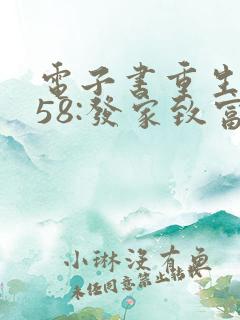 電子書重生
58:發家致富
小琳沒有魚
未經同意禁止轉載